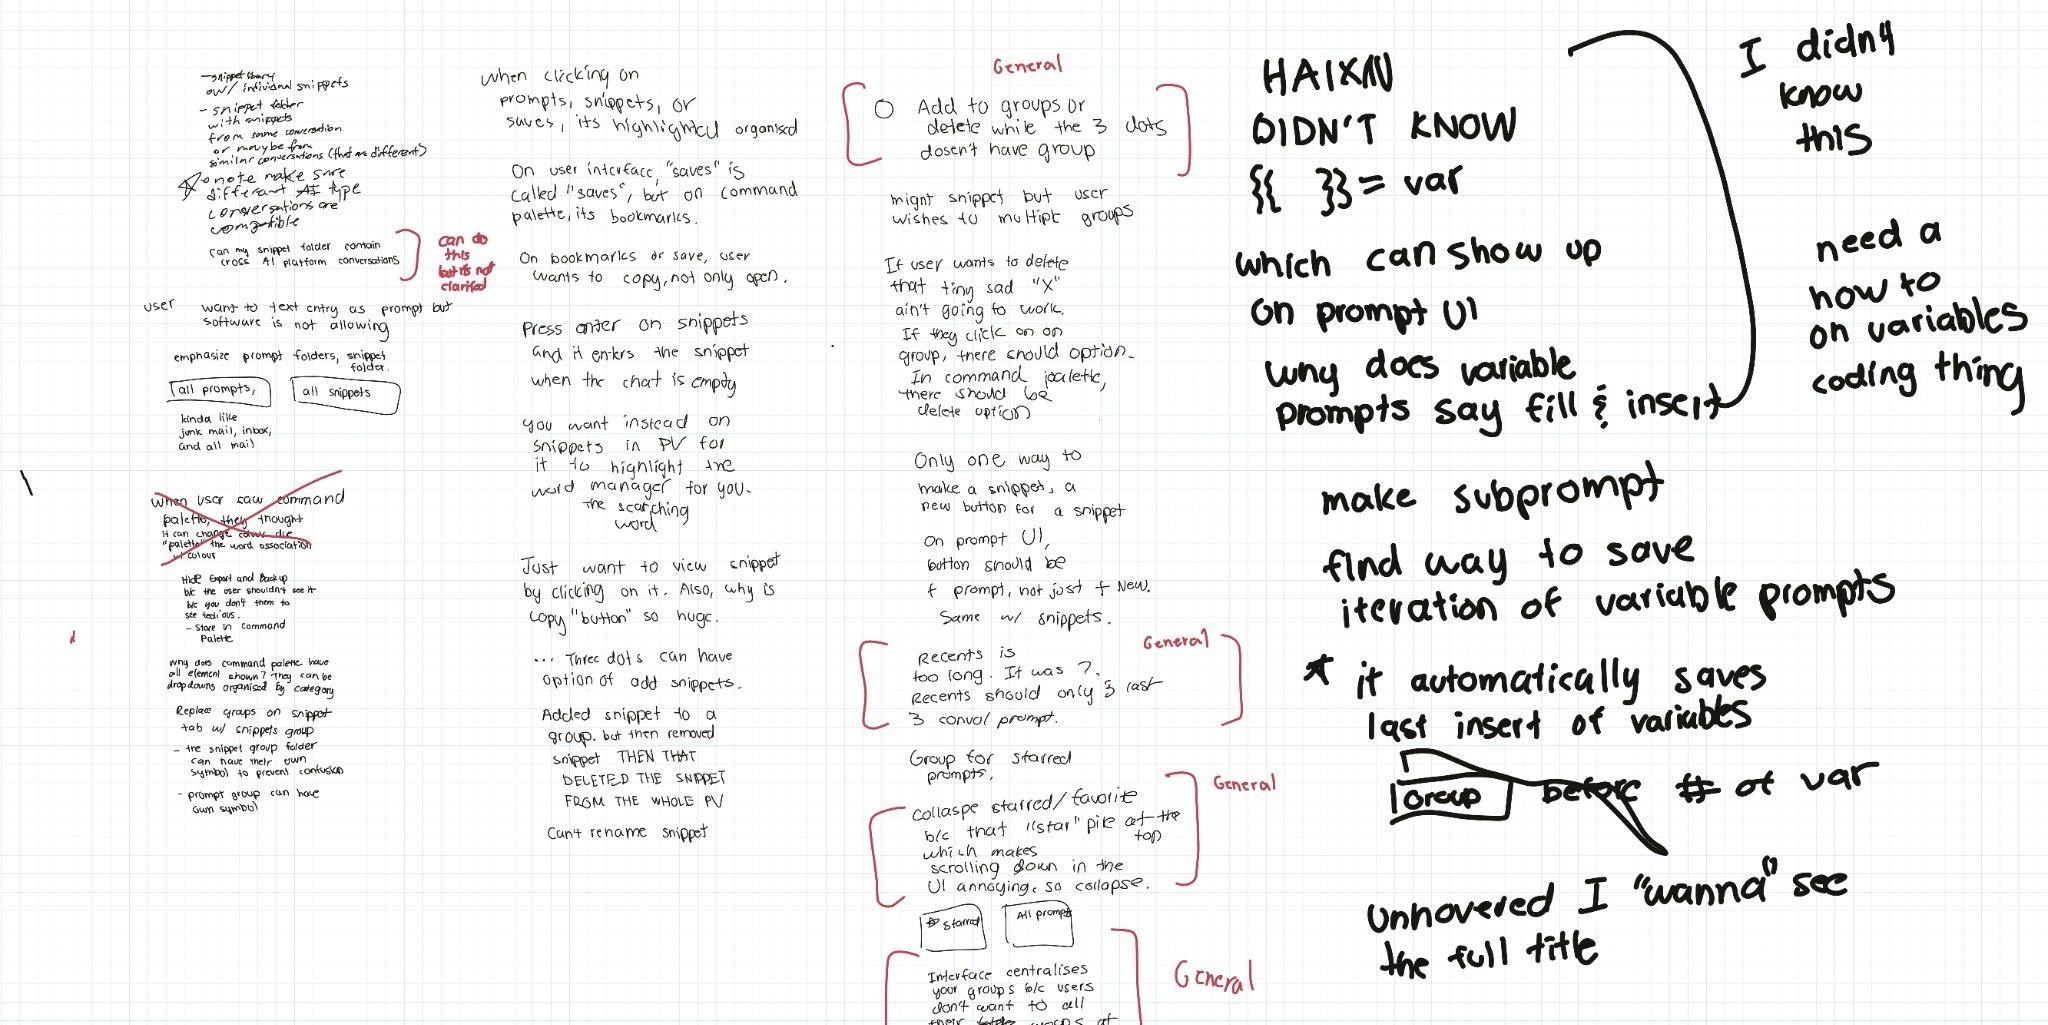 - snippet library
w/ individual snippets
- snippet folder
with snippets
from same conversation
or maybe from
similar conversations (that are different)
note make sure
different AI type
conversations are
compatible
can my snippet folder contain
cross AI platform conversations
can do
this
but it's not
clarified
user want to text entry as prompt but
software is not allowing
emphasize prompt folders, snippet
folder.
all prompts,
all snippets
kinda like
junk mail, inbox,
and all mail
when user saw command
palette, they thought
it can change colour
"palette" the word association
w/ colour
Hide Export and Backup
b/c the user shouldn't see it
b/c you don't them to
see tedious.
- Store in command
Palette
why does command palette have
all element shown? They can be
dropdowns organised by category
Replace groups on snippet
tab w/ snippets group
- the snippet group folder
can have their own
symbol to prevent confusion
- prompt group can have
own symbol
when clicking on
prompts, snippets, or
saves, its highlighted organised
On user interface, "saves" is
called "saves", but on command
palette, its bookmarks.
On bookmarks or save, user
wants to copy, not only open.
Press enter on snippets
and it enters the snippet
when the chat is empty
you want instead on
snippets in PV for
it to highlight the
word manager for you.
The searching
word
Just want to view snippet
by clicking on it. Also, why is
copy "button" so huge.
... Three dots can have
option of add snippets.
Added snippet to a
group. but then removed
snippet THEN THAT
DELETED THE SNIPPET
FROM THE WHOLE PV
Can't rename snippet
General
Add to groups or
delete while the 3 dots
dosen't have group
might snippet but user
wishes to multiple groups
If user wants to delete
that tiny sad "X"
ain't going to work.
If they click on on
group, there should option.
In command palette,
there should be
delete option
Only one way to
make a snippet, a
new button for a snippet
On prompt UI,
button should be
+ prompt, not just + New.
Same w/ snippets.
General
Recents is
too long. It was 7.
Recents should only 3 last
3 convo/ prompt.
Group for starred
prompts.
General
collaspe starred/favorite
b/c that "star" pile at the
top
which makes
scrolling down in the
UI annoying, so collapse.
Starred
All prompts
General
Interface centralises
your groups b/c users
don't want to all
their groups at
HAIXIN
DIDN'T KNOW
{{ }} = var
which can show up
on prompt UI
why does variable
prompts say fill & insert
I didn't
know
this
need a
how to
on variables
coding thing
make subprompt
find way to save
iteration of variable prompts
it automatically saves
last insert of variables
Group before # of var
unhovered I "wanna" see
the full title